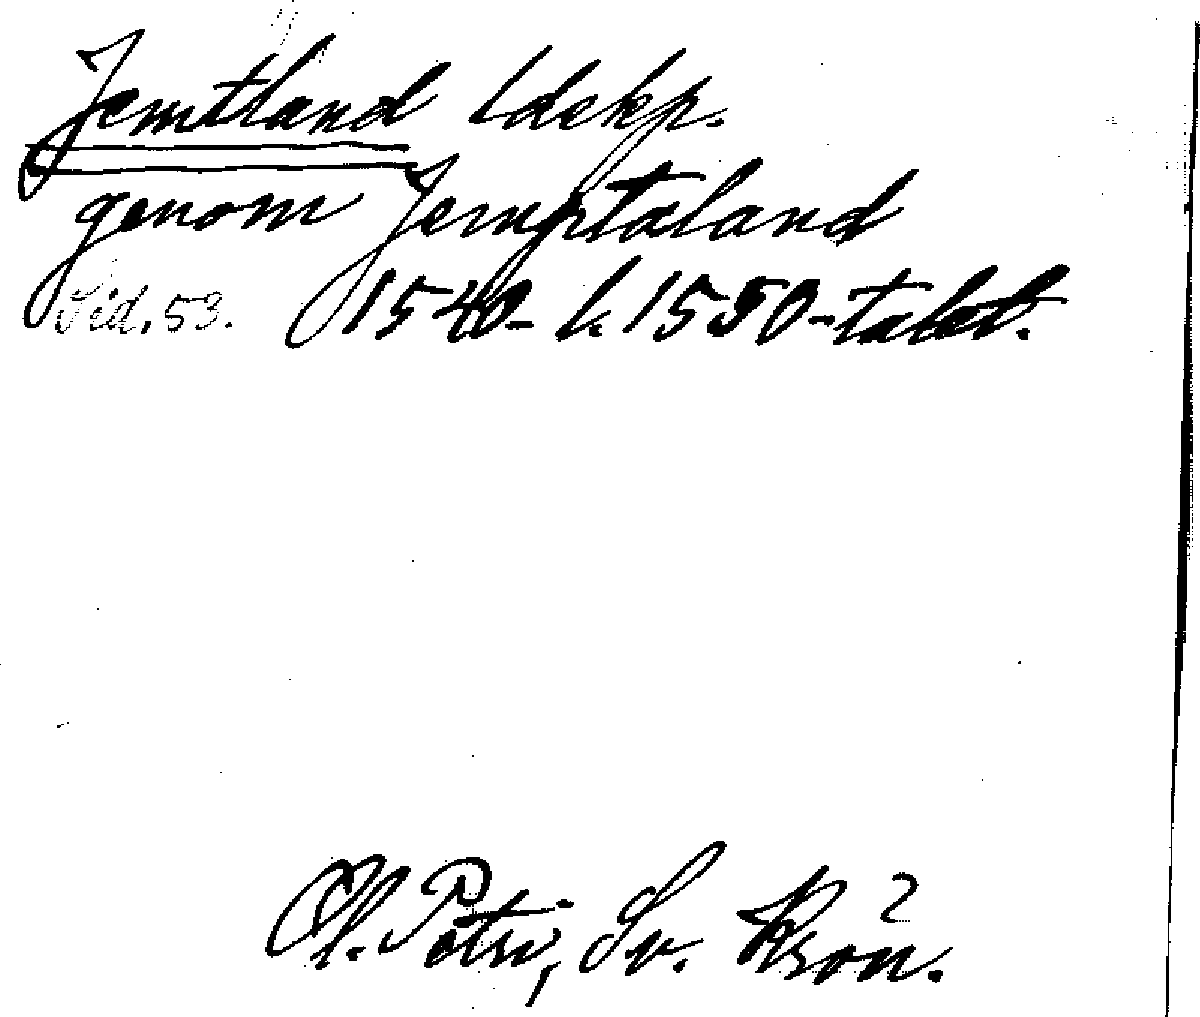 Jemtland ldskp.
genom Jemptaland
Sid. 53. 1540- l. 1550-talet.
Ol. Petri, Sv. Krön. 2